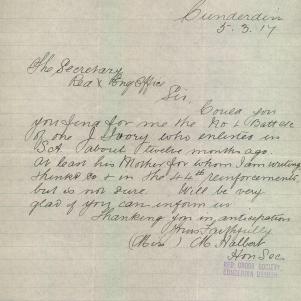 Cunderdin
5.3.17
The Secretary
Red X Enq Office
Sir,
Could you
you find for me the No & Batt etc
of one J Ivory who enlisted in
W.A about twelve months ago.
At least his Mother for whom I am writing
thinks so & in the 44th reinforcements
but is not sure. Will be very
glad if you can inform us
Thanking you in anticipation
Yours Faithfully
(Miss) M. Halbert
Hon Sec
RED CROSS SOCIETY
CUNDERDIN BRANCH